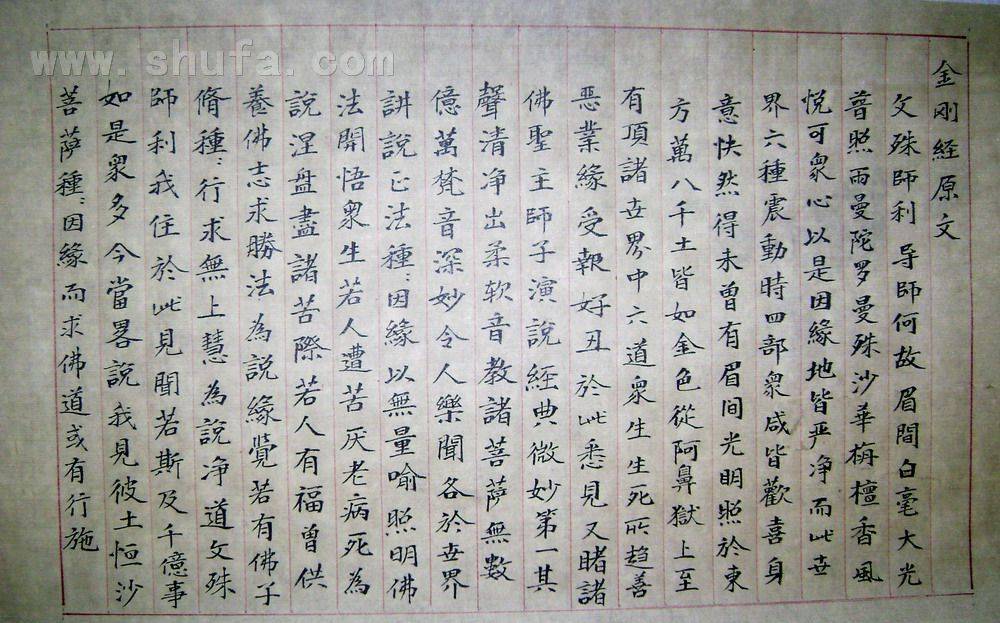 www.shufa.com
金刚经原文
文殊師利导師何故眉間白毫大光
普照雨曼陀罗曼殊沙華栴檀香風
悦可衆心以是因緣地皆严净而此世
界六種震動時四部衆咸皆歡喜身
意快然得未曽有眉间光明照於東
方萬八千土皆如金色從阿鼻獄上至
有頂諸世界中六道衆生生死所趋善
恶業緣受報好丑於此悉見又睹諸
佛聖主師子演說經典微妙第一其
聲清净出柔软音教諸菩薩無數
億萬梵音深妙令人樂聞各於世界
講說正法種:因緣以無量喻照明佛
法開悟衆生若人遭苦厌老病死為
說涅盘盡諸苦際若人有福曽供
養佛志求勝法為說緣覺若有佛子
脩種:行求無上慧為說净道文殊
師利我住於此見聞若斯及千億事
如是衆多今當畧說我見彼土恒沙
菩薩種:因緣而求佛道或有行施